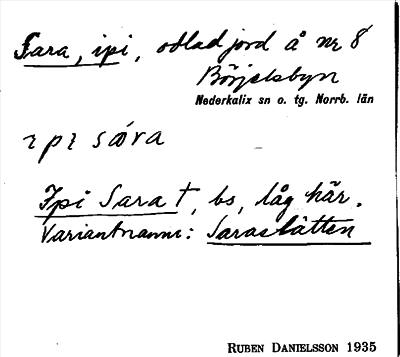 Sara, ipi, odlad jord å nr 8
Börjelsbyn
Nederkalix sn o. tg. Norrb. län
ɪpɪ sɑ́ra
Ipi Sara †, bs, låg här.
Variantnamn: Saraslätten
RUBEN DANIELSSON 1935